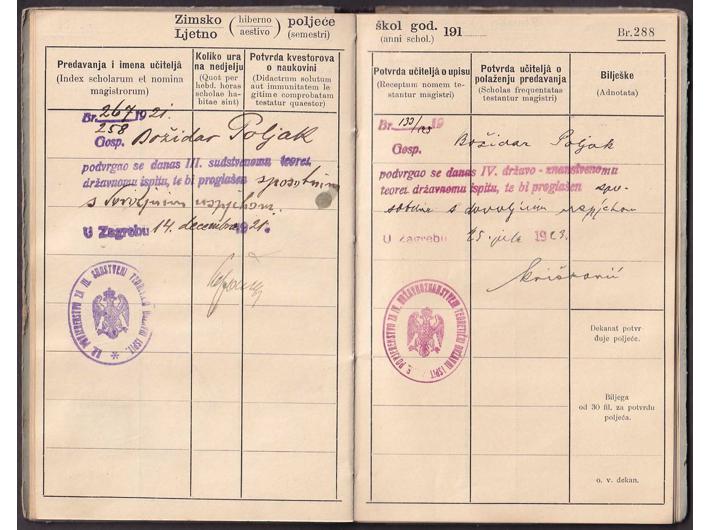 Zimsko (hiberno) poljeće
Ljetno (aestivo) (semestri)
Predavanja i imena učiteljâ
(Index scholarum et nomina
magistrorum)
Koliko ura
na nedjelju
(Quot per
hebd. horas
scholae ha-
bitae sint)
Potvrda kvestorova
o naukovini
(Didactrum solutum
aut immunitatem le-
gitime comprobatam
testatur quaestor)
Br. 267/1921.
258
Gosp. Božidar Poljak
podvrgao se danas III. sudstvenomu teoret.
državnomu ispitu, te bi proglašen sposobnim
s dovoljnim uspjehom.
U Zagrebu 14. decembra 1921.
škol god. 191
(anni schol.)
Br. 288
Potvrda učiteljâ o upisu
(Receptum nomem te-
stantur magistri)
Potvrda učiteljâ o
polaženju predavanja
(Scholas frequentatas
testantur magistri)
Bilješke
(Adnotata)
Br. 19
Gosp. Božidar Poljak
podvrgao se danas IV. državo-znanstvenomu
teoret. državnomu ispitu, te bi proglašen spo-
sobnim s dovoljnim uspjehom
U Zagrebu 25. jula 1923.
Dekanat potvr
đuje poljeće.
Biljega
od 30 fil. za potvrdu
poljeća.
o. v. dekan.